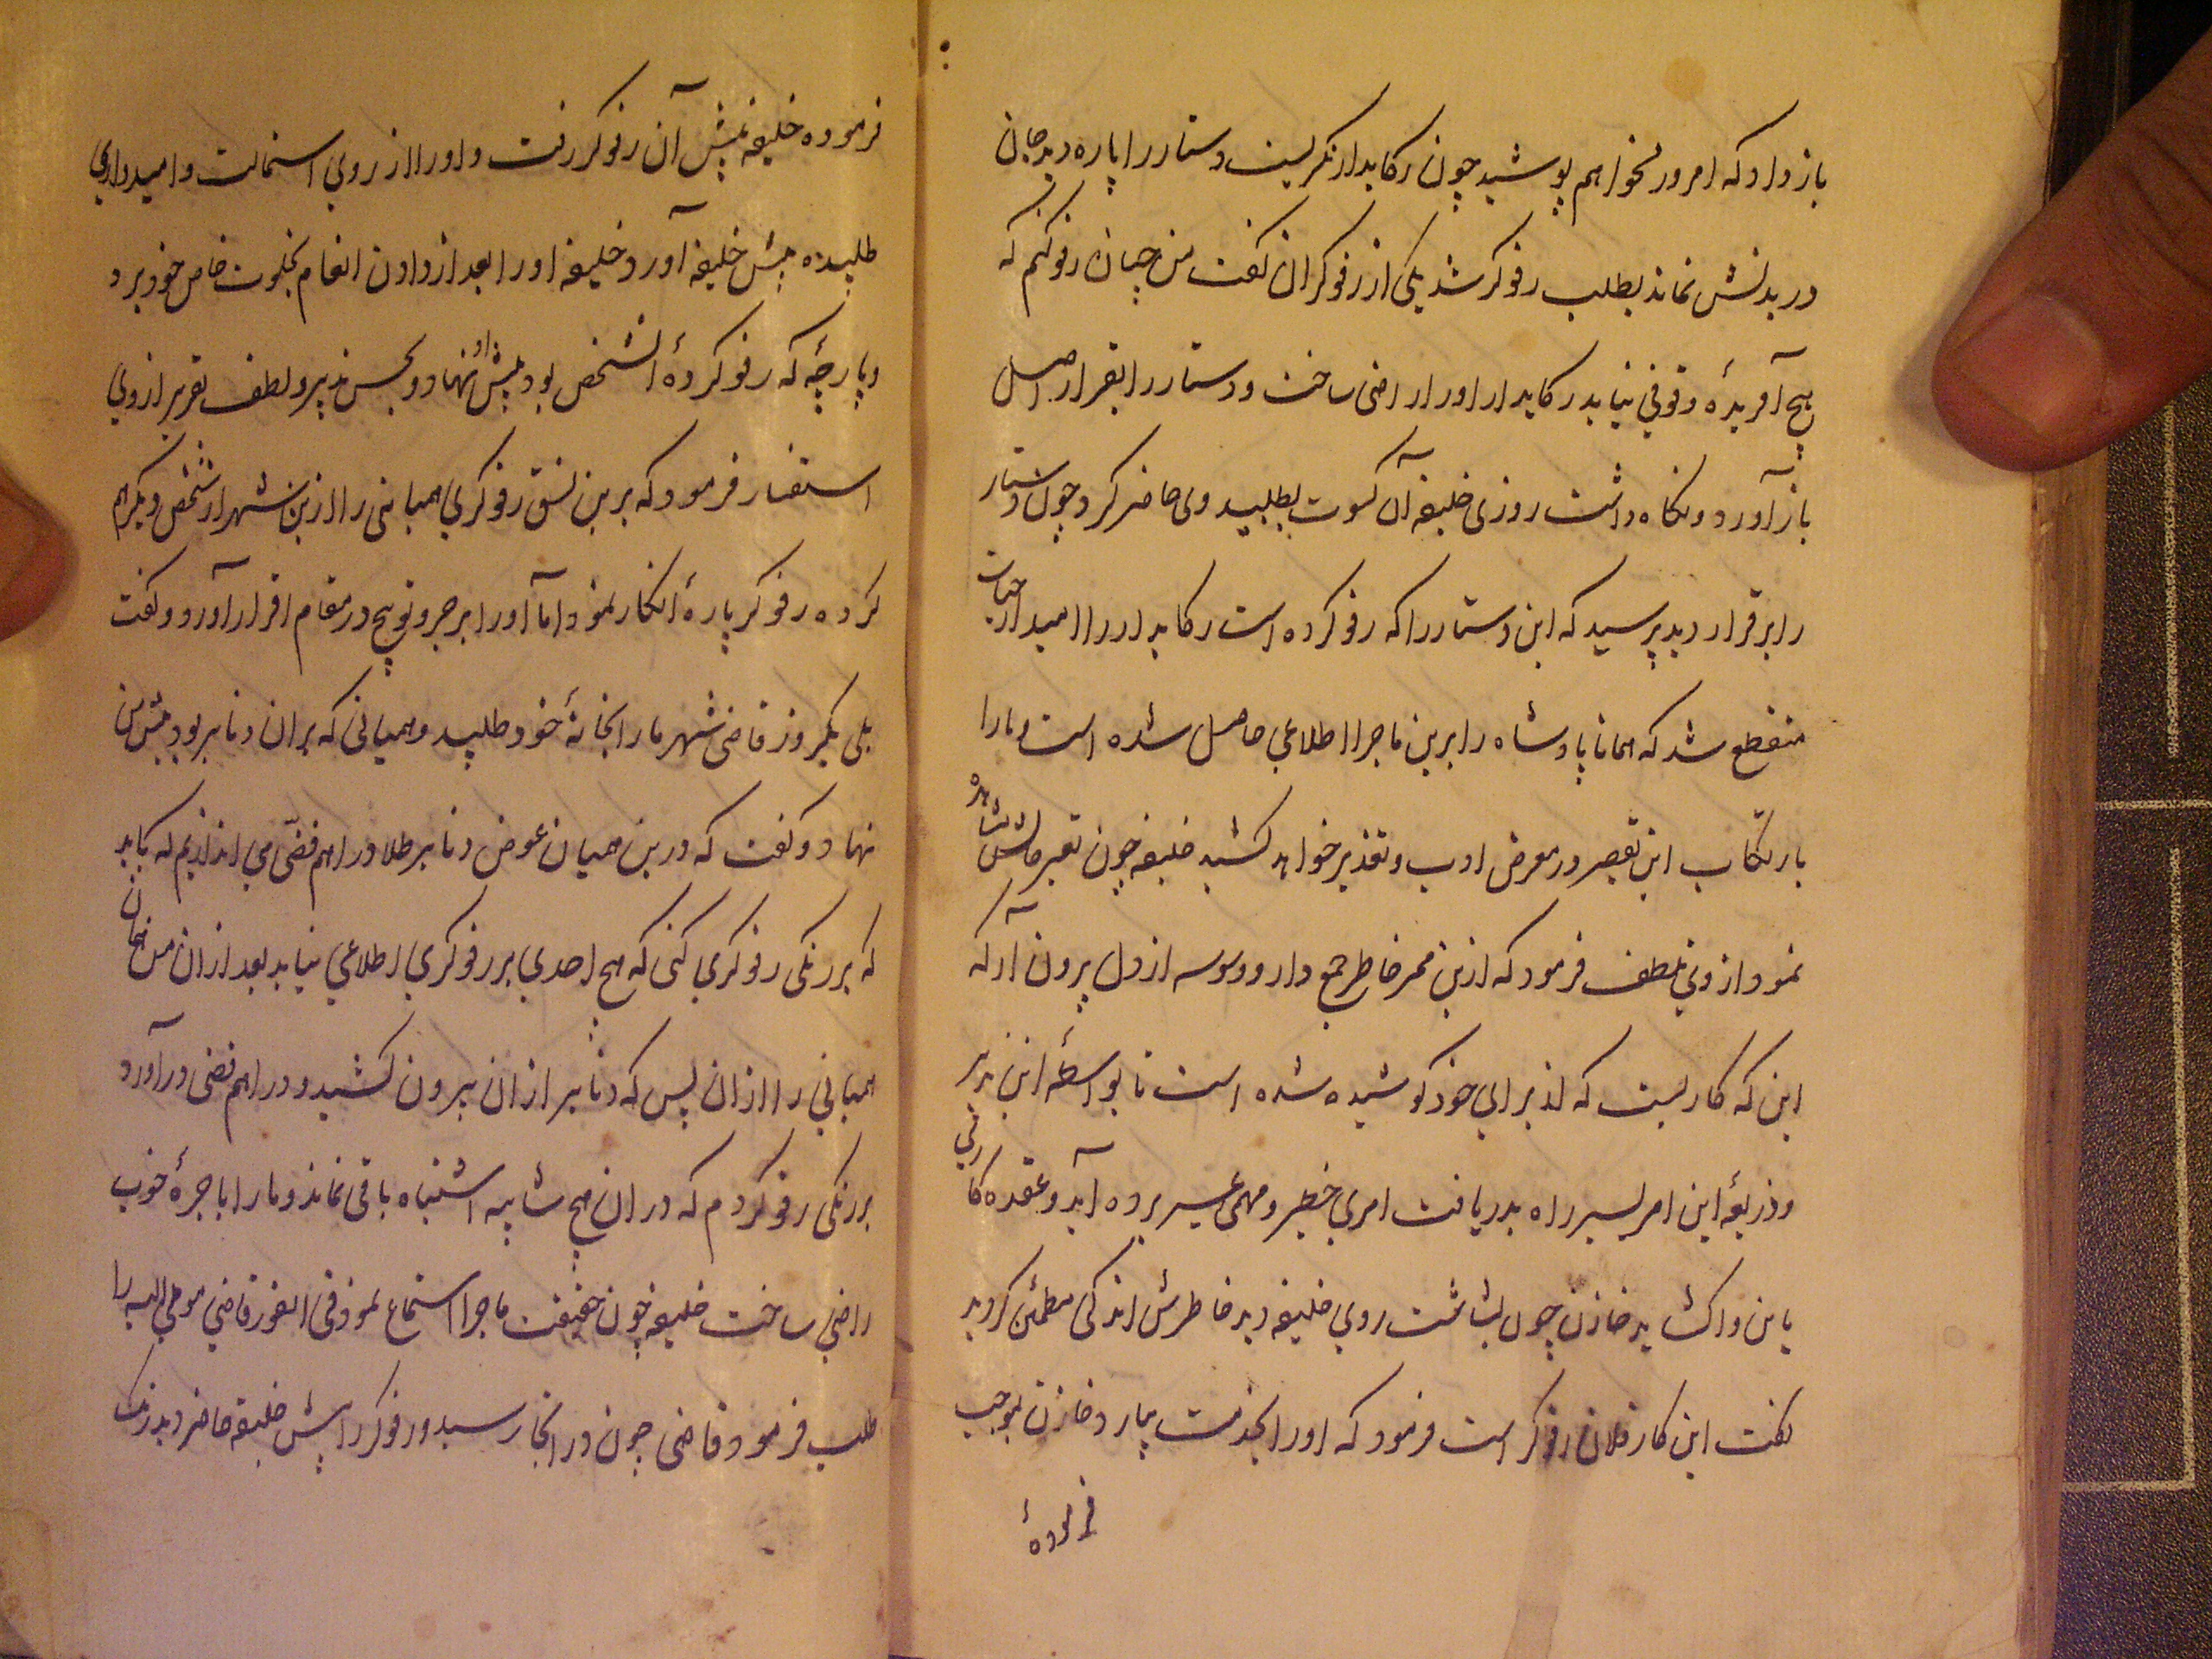 باز داد که امروز نخواهم پوشید چون رکابدار نگریست دستار را پاره دید جان
در بدنش نماند بطلب رفوگر شد یکی از رفوگران گفت من چنان رفو کنم که
هیچ آفریدهٔ وقوفی نیابد رکابدار او را راضی ساخت و دستار را بقرار اصل
باز آورد و نگاه داشت روزی خلیفه آن کسوت بطلبید وی حاضر کرد چون دستار
را برقرار دید پرسید که این دستار را که رفو کرده است رکابدار را امید از حیات
منقطع شد که همانا پادشاه را برین ماجرا اطلاعی حاصل شده است و مارا
بارتکاب این تقصیر در معرض ادب و تعذیر خواهد کشید خلیفه چون تغیر حالش مشاهده
نمود از وی بلطف فرمود که ازین ممر خاطر جمع دار و وسوسه از دل بیرون آر که
این که کاریست که از برای خود کوشیده شده است تا بواسطهٔ این تدبیر
و ذریعهٔ این امر یسیر راه بدریافت امری خطیر و مهمی عسیر برده آید و عقدهٔ کار فی
باین واکشاید خازن چون بشاشت روی خلیفه دید خاطرش اندکی مطمئن گردید
گفت این کار فلان رفوگر است فرمود که او را بخدمت بیار و خازن بموجب
فرمودهٔ
فرموده خلیفه پیش آن رفوگر رفت و او را از روی استمالت و امیدواری
طلبیده پیش خلیفه آورد خلیفه او را بعد از دادن انعام بخلوت خاص خود برد
و پارچهٔ که رفو کردهٔ آنشخص بود پیش او نهاد و بحسن تدبیر و لطف تقریر از وی
استفسار فرمود که برین نسق رفوگری همیانی را ازین شهر از شخص دیگر هم
کرده رفوگر پارهٔ انکار نمود اما او را بزجر و توبیخ در مقام اقرار آورد و گفت
بلی یکروز قاضی شهر ما را بخانهٔ خود طلبید و همیانی که بران دنانیر بود پیش من
نهاد و گفت که درین همیان عوض دنانیر طلا دراهم فضی می اندازیم که باید
که برنگی رفوگری کنی که هیچ احدی بر رفوگری اطلاعی نیابد بعد ازان من همان
همیانی را ازان پس که دنانیر ازان بیرون کشید و دراهم فضی در آورد
برنگی رفو کردم که دران هیچ شایبه اشتباه باقی نماند و ما را با جرهٔ خوب
راضی ساخت خلیفه چون حقیقت ماجرا استماع نمود فی الفور قاضی مومی الیه را
طلب فرمود قاضی چون در انجا رسید و رفوگر را پیش خلیفه حاضر دید رنگ